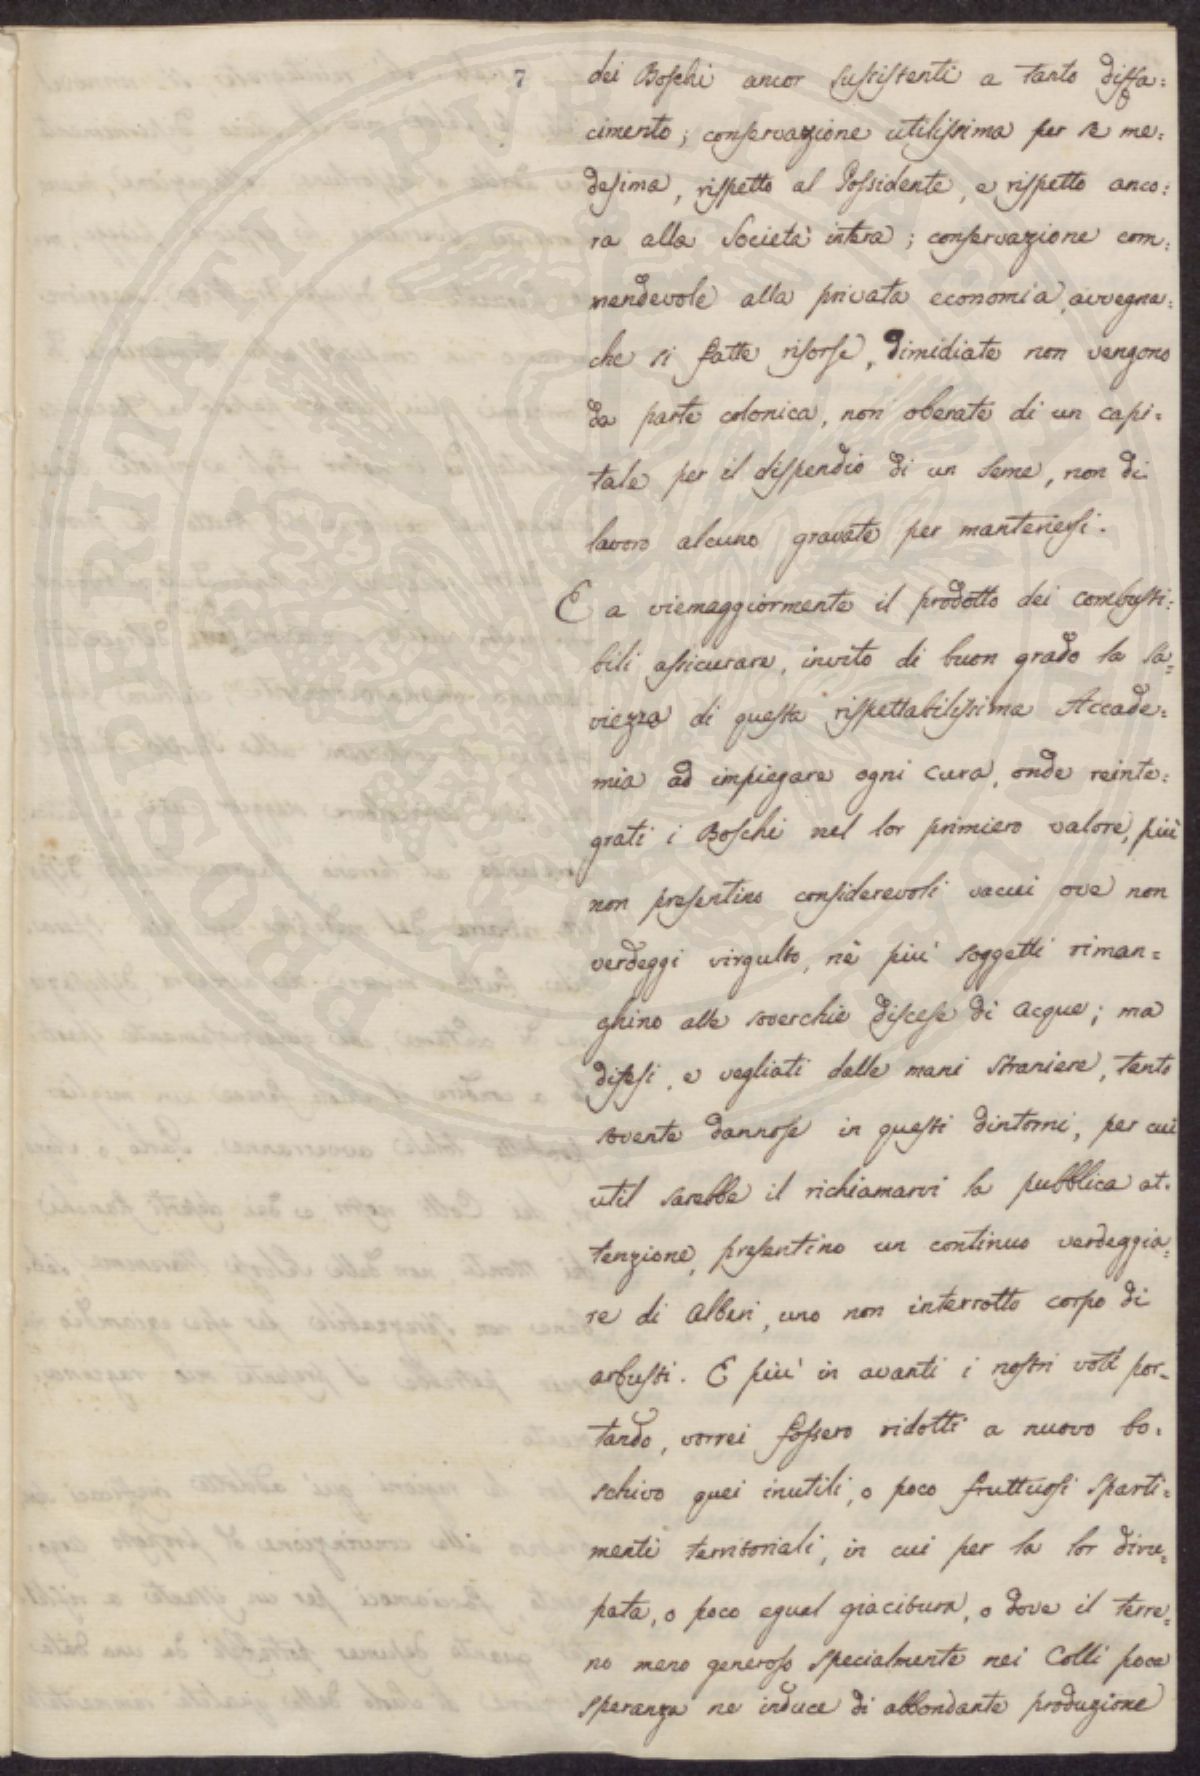 7
dei Boschi ancor sussistenti a tanto disfa:
cimento; conservazione utilissima per se me:
desima, rispetto al Possidente, e rispetto anco:
ra alla Società intera; conservazione com:
mendevole alla privata economia, avvegna:
che si fatte risorse, dimidiate non vengono
da parte colonica, non oberate di un capi:
tale per il dispendio di un seme, non di
lavoro alcuno gravate per mantenersi.
E a viemaggiormente il prodotto dei combusti:
bili assicurare, invito di buon grado la sa:
viezza di questa rispettabilissima Accade:
mia ad impiegare ogni cura, onde reinte:
grati i Boschi nel lor primiero valore, più
non presentino considerevoli vacui ove non
verdeggi virgulto, nè più soggetti riman=
ghino alle soverchie discese di acque; ma
difesi, e vegliati dalle mani straniere, tanto
sovente dannose in questi dintorni, per cui
util sarebbe il richiamarvi la pubblica at:
tenzione, presentino un continuo verdeggia:
re di alberi, uno non interrotto corpo di
arbusti. E più in avanti i nostri voti por=
tando, vorrei fossero ridotti a nuovo bo:
schivo quei inutili, o poco fruttuosi sparti:
menti territoriali, in cui per la lor diru:
pata, o poco egual giacitura, o dove il terre:
no meno generoso specialmente nei Colli poca
speranza ne induce di abbondante produzione